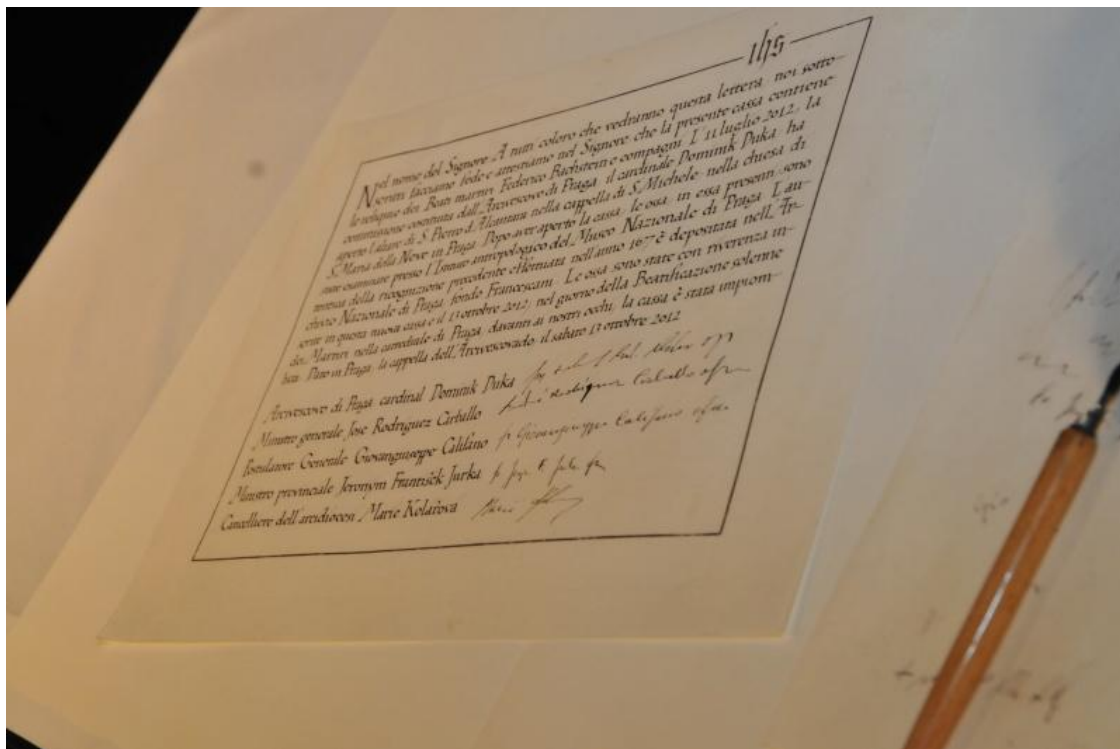 ihs
Nel nome del Signore. A tutti coloro che vedranno questa lettera, noi sotto-
scritti facciamo fede e attestiamo nel Signore che la presente cassa contiene
le reliquie dei Beati martiri Federico Bachstein e compagni. L'11 luglio 2012, la
commissione costituita dall'Arcivescovo di Praga, il cardinale Dominik Duka, ha
aperto l'altare di S. Pietro d'Alcantara nella cappella di S. Michele, nella chiesa di
S. Maria della Neve in Praga. Dopo aver aperto la cassa, le ossa, in essa presenti, sono
state esaminate presso l'Istituto antropologico del Museo Nazionale di Praga. L'au-
tentica della ricognizione precedente effettuata nell'anno 1677 è depositata nell'Ar-
chivio Nazionale di Praga, fondo Francescani. Le ossa sono state con riverenza in-
serite in questa nuova cassa e il 13 ottobre 2012, nel giorno della Beatificazione solenne
dei Martiri nella cattedrale di Praga, davanti ai nostri occhi, la cassa è stata
Dato in Praga, la cappella dell'Arcivescovado, il sabato 13 ottobre 2012
Arcivescovo di Praga cardinal Dominik Duka
Ministro generale Jose Rodriguez Carballo
Postulatore Generale Giovangiuseppe Califano fr Giovangiuseppe Califano ofm
Ministro provinciale Jeronym František Jurka
Cancelliere dell'arcidiocesi Marie Kolářova